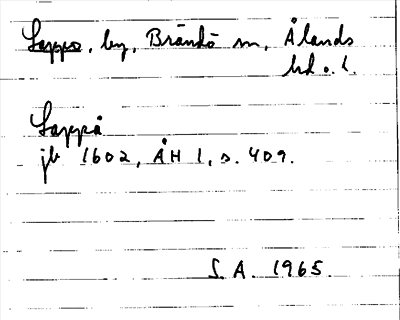 Lappo, by, Brändö sn, Ålands
hd o. l.
Lappå
jb 1602, ÅH 1, s. 409.
S. A. 1965.